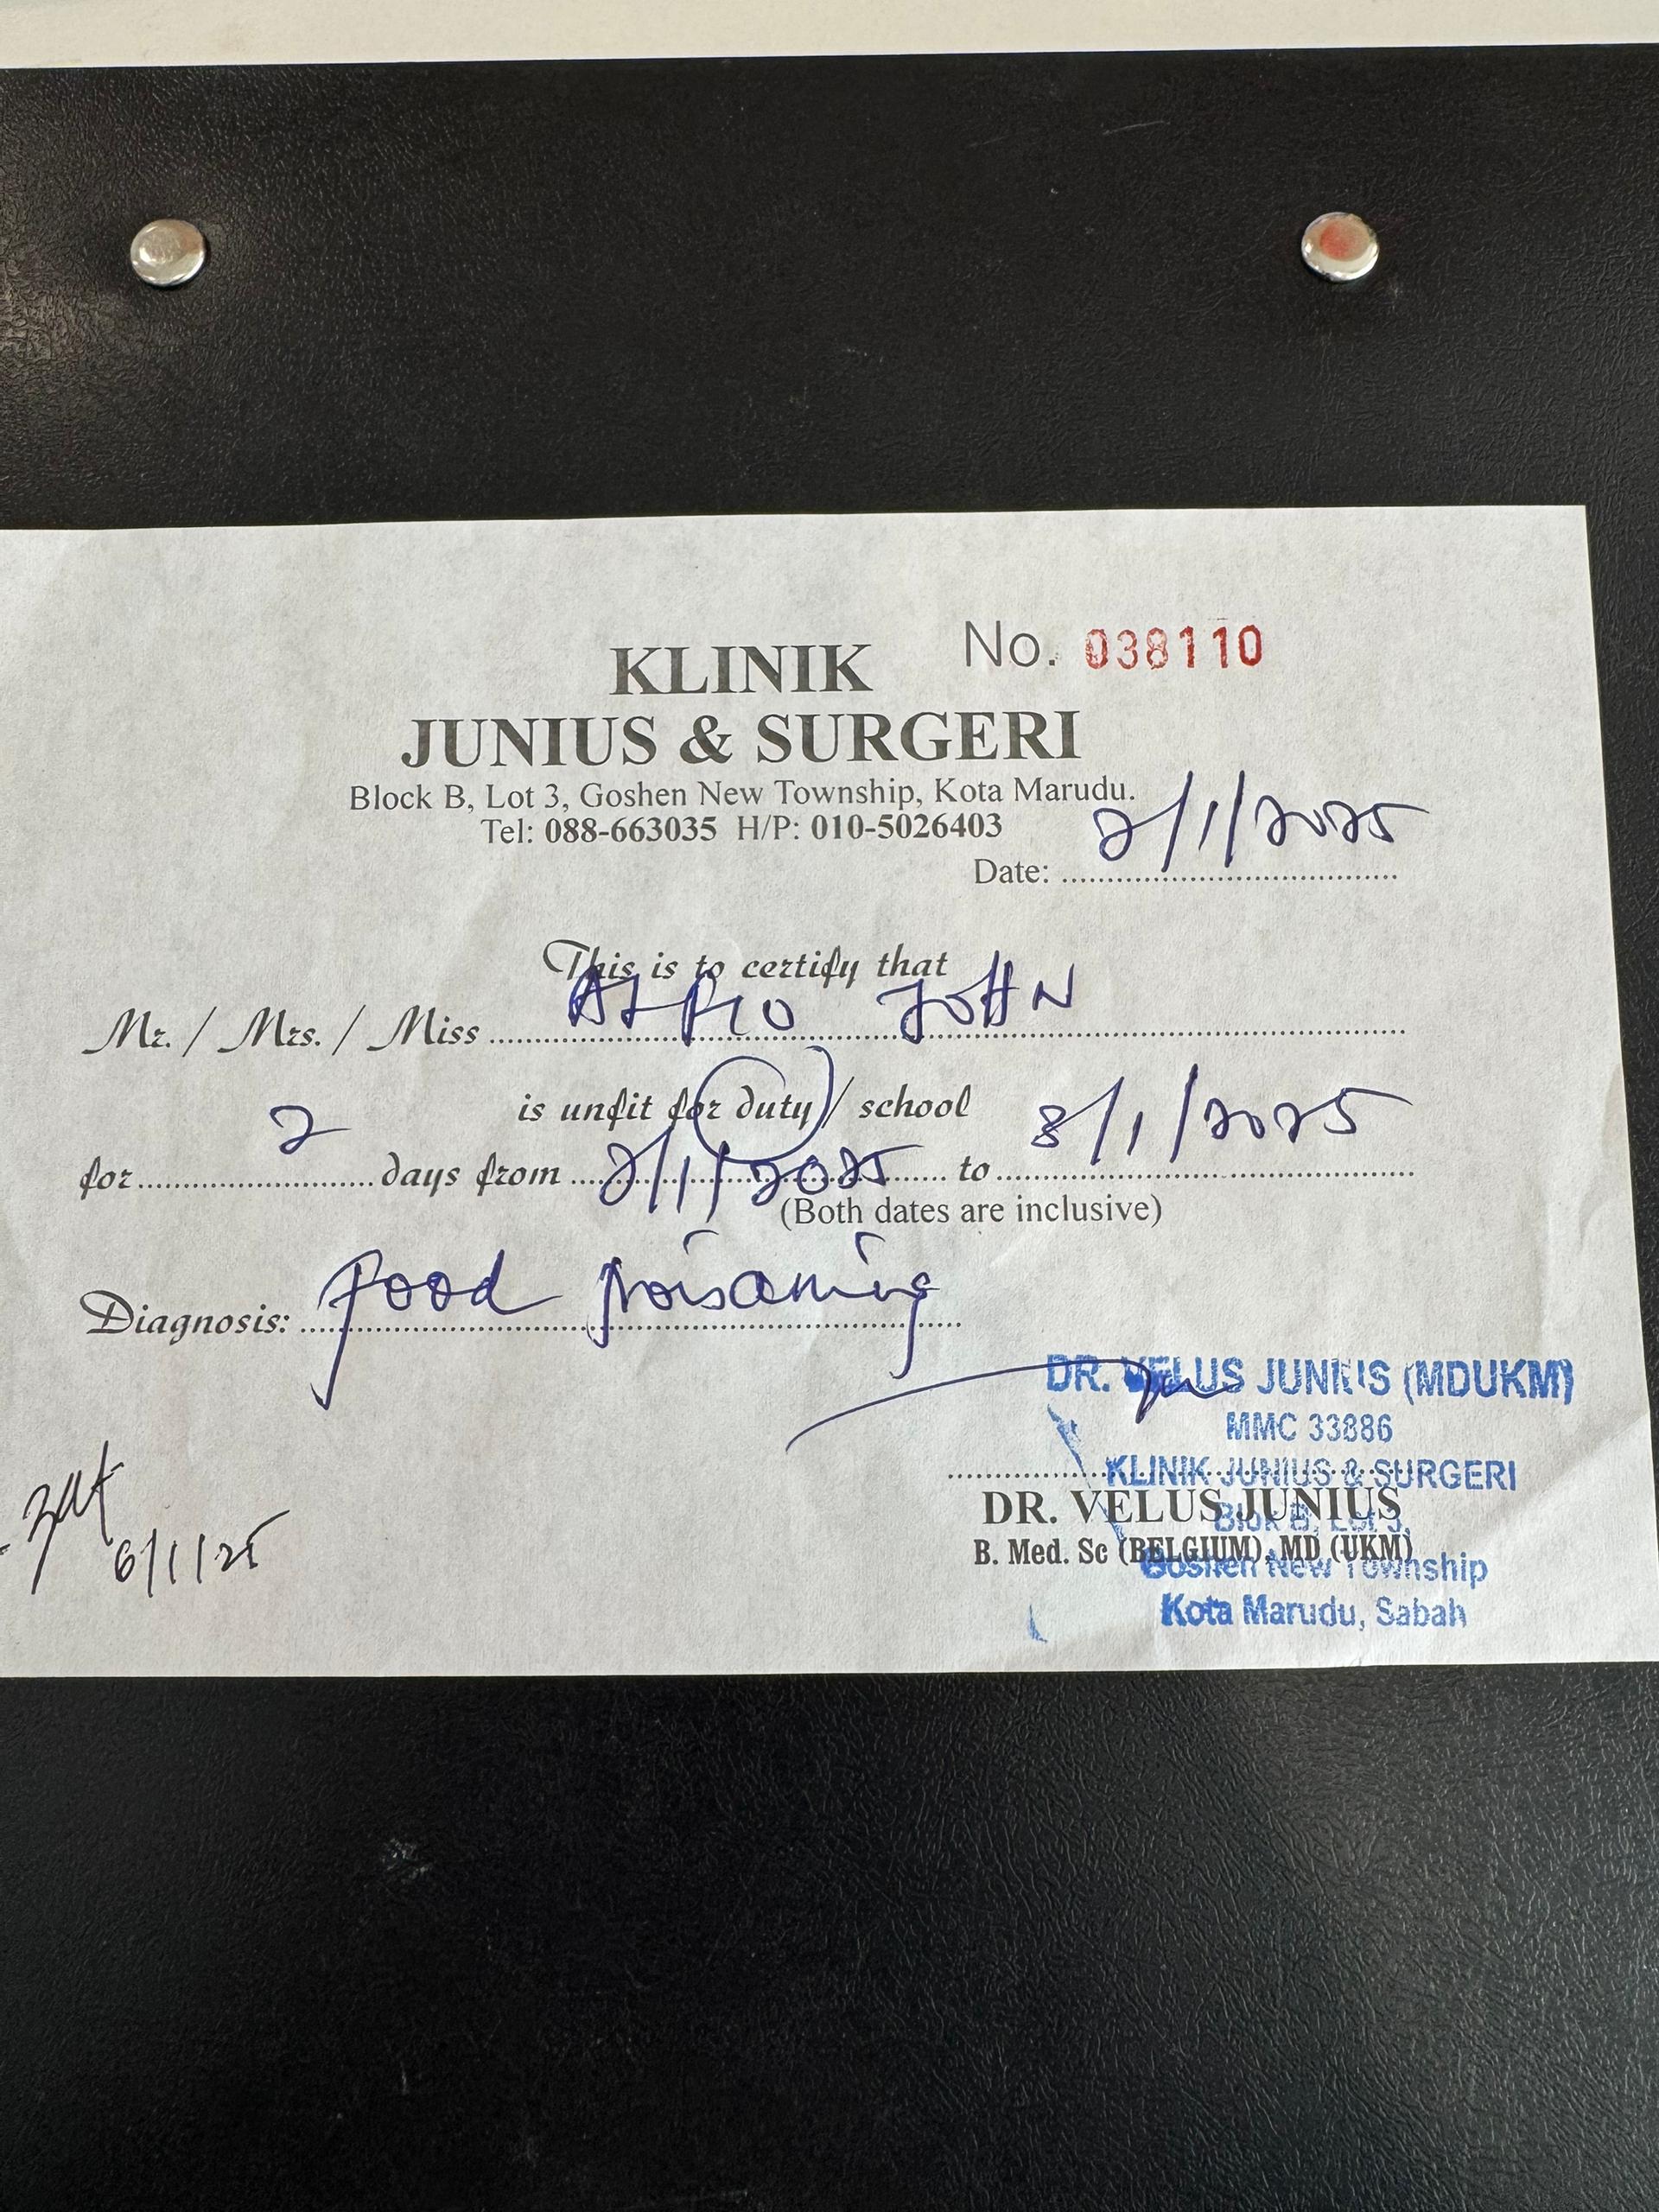 No. 038110
KLINIK
JUNIUS & SURGERI
Block B, Lot 3, Goshen New Township, Kota Marudu.
Tel: 088-663035 H/P: 010-5026403
Date: 2/1/2025
This is to certify that
Mr. / Mrs. / Miss JOHN
is unfit for duty / school
for 2 days from 2/1/2025 to 3/1/2025
(Both dates are inclusive)
Diagnosis: food poisoning
DR. VELUS JUNIUS (MDUKM)
MMC 33886
KLINIK JUNIUS & SURGERI
Blok B, Lot 3,
Goshen New Township
Kota Marudu, Sabah
DR. VELUS JUNIUS
B. Med. Sc (BELGIUM), MD (UKM)
6/1/25